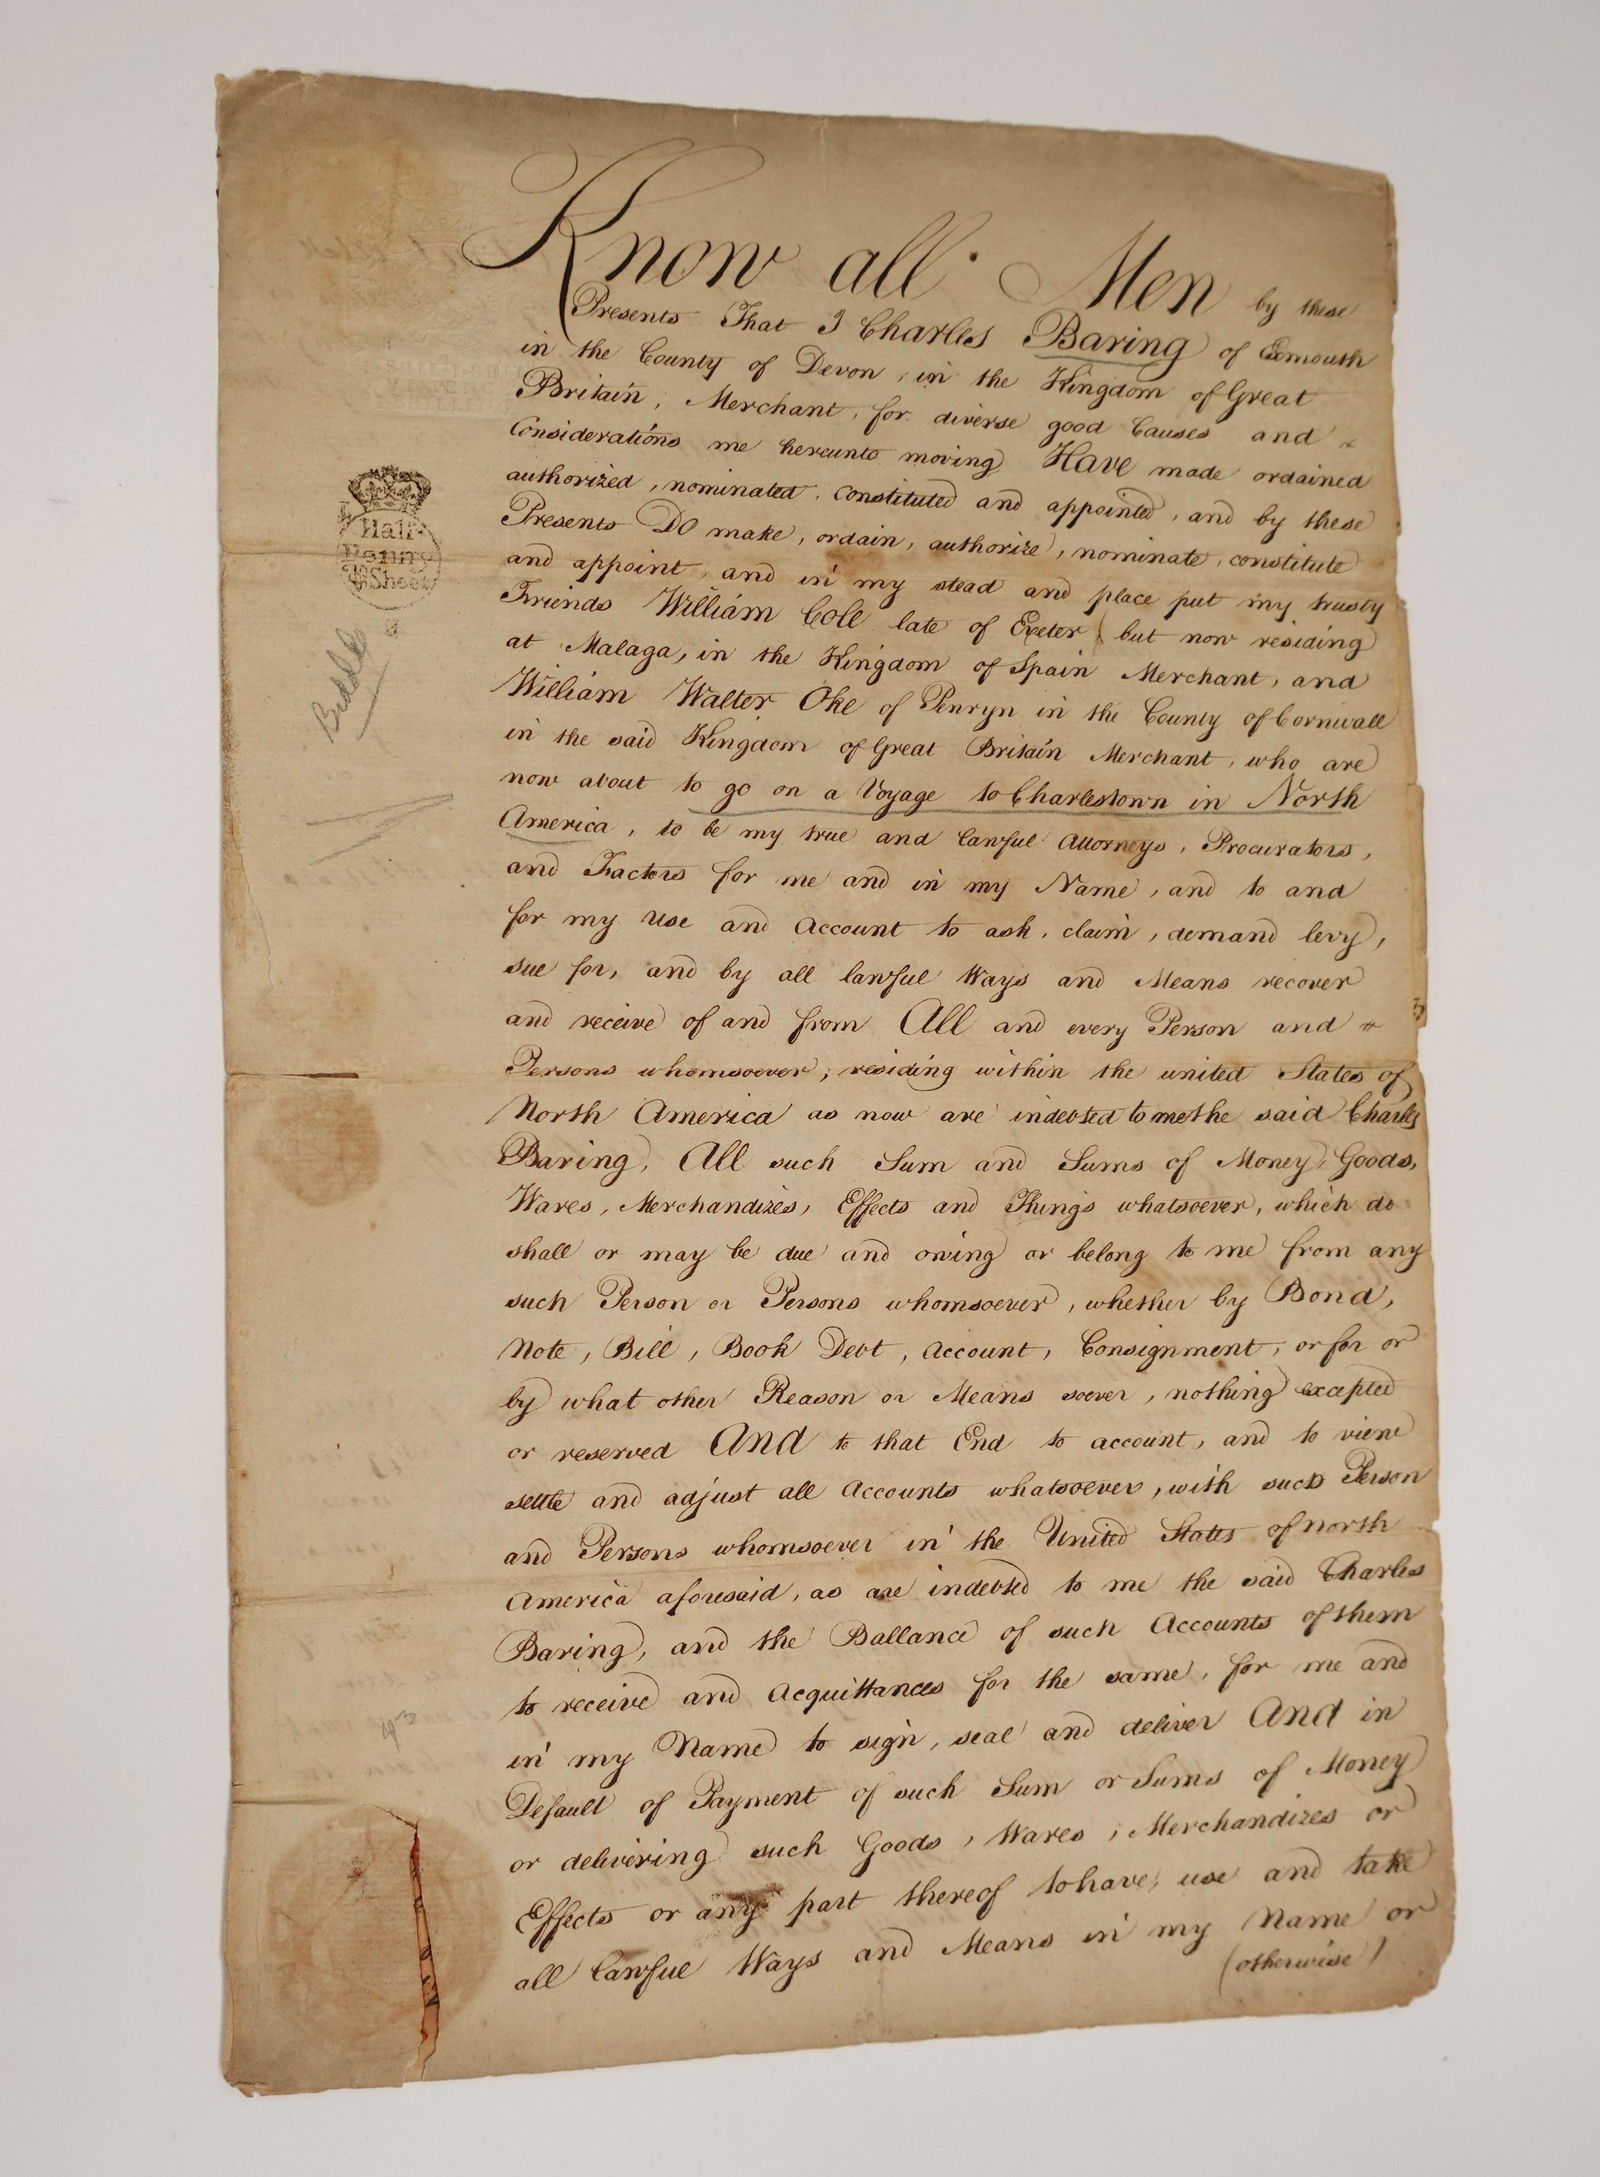 Know all Men by these
Presents That I Charles Baring of Exmouth
in the County of Devon, in the Kingdom of Great
Britain, Merchant, for diverse good Causes and
Considerations me hereunto moving Have made ordained
authorized, nominated, constituted and appointed, and by these
Presents Do make, ordain, authorize, nominate, constitute
and appoint, and in my stead and place put my trusty
Friends William Cole late of Exeter but now residing
at Malaga, in the Kingdom of Spain Merchant, and
William Walter Oke of Penryn in the County of Cornwall
in the said Kingdom of Great Britain Merchant, who are
now about to go on a Voyage to Charlestown in North
America, to be my true and lawful Attorneys, Procurators,
and Factors for me and in my Name, and to and
for my Use and Account to ask, claim, demand levy,
sue for, and by all lawful Ways and Means recover
and receive of and from All and every Person and
Persons whomsoever, residing within the united States of
North America as now are indebted to me the said Charles
Baring, All such Sum and Sums of Money, Goods,
Wares, Merchandizes, Effects and Things whatsoever, which do
shall or may be due and owing or belong to me from any
such Person or Persons whomsoever, whether by Bond,
Note, Bill, Book Debt, Account, Consignment, or for or
by what other Reason or Means soever, nothing excepted
or reserved And to that End to account, and to view
settle and adjust all Accounts whatsoever, with such Person
and Persons whomsoever in the United States of North
America aforesaid, as are indebted to me the said Charles
Baring, and the Ballance of such Accounts of them
to receive and Acquittances for the same, for me and
in my Name to sign, seal and deliver And in
Default of Payment of such Sum or Sums of Money
or delivering such Goods, Wares, Merchandizes or
Effects or any part thereof to have, use and take
all lawful Ways and Means in my Name or
(otherwise)
Half
Penny
Sheet
Biddle